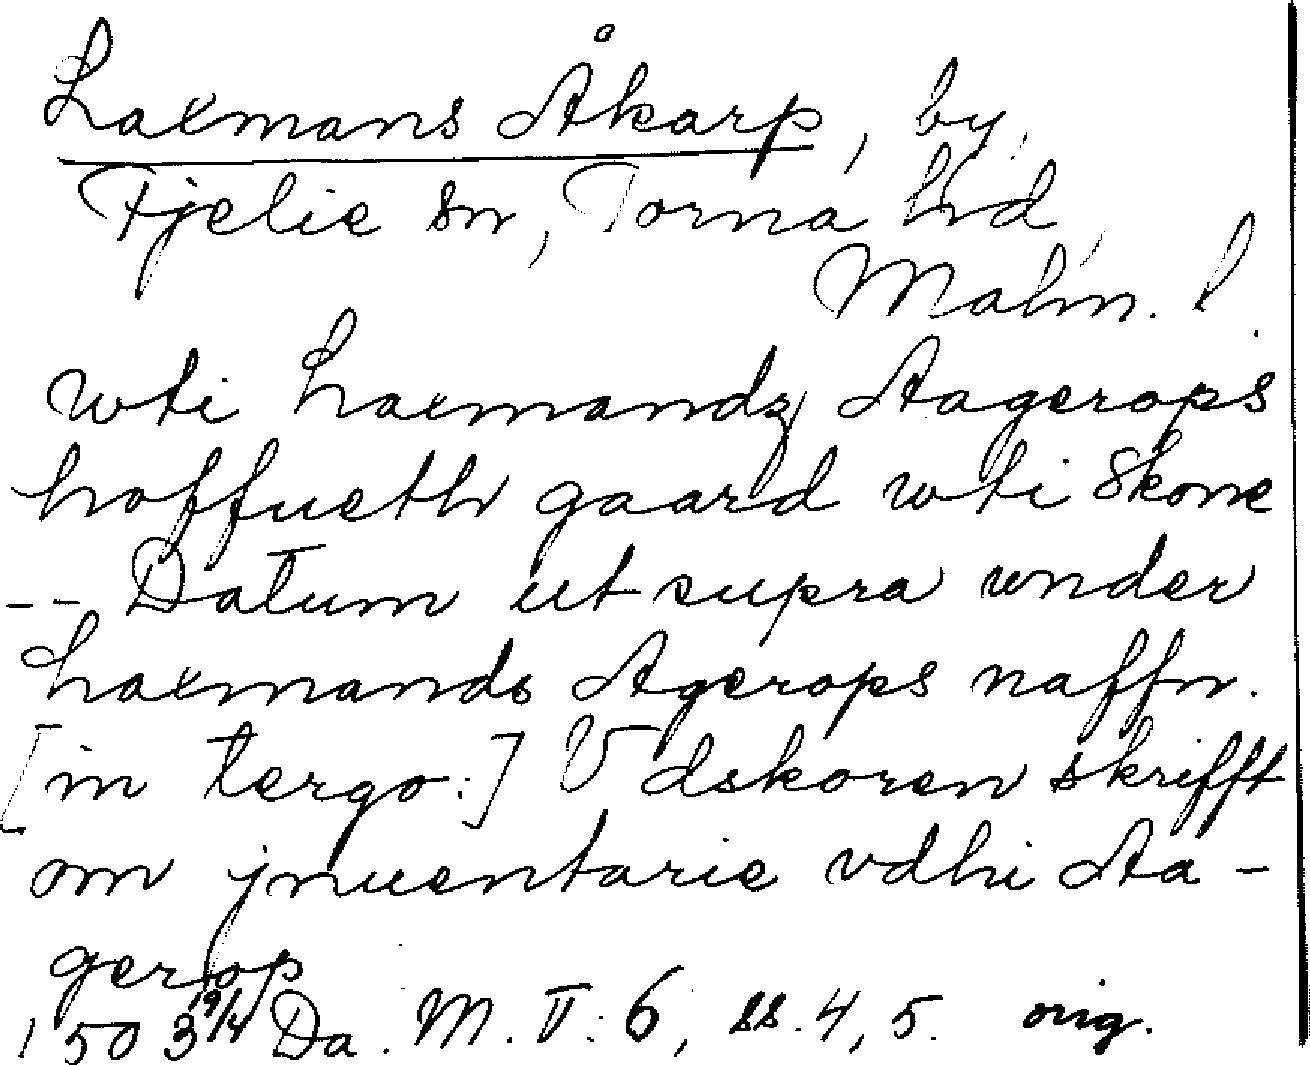 Laxmans Åkarp, by,
Fjelie sn, Torna hrd,
Malm. l.
wti Laxmandz Aagerops
hoffueth gaard wti Skone
-- Datum ut supra vnder
Laxmands Agerops naffn.
[in tergo:] Vdskoren skrifft
om jnuentarie vdhi Aa-
gerop
1503 19/4 Da. M. II: 6, ss. 4, 5. orig.